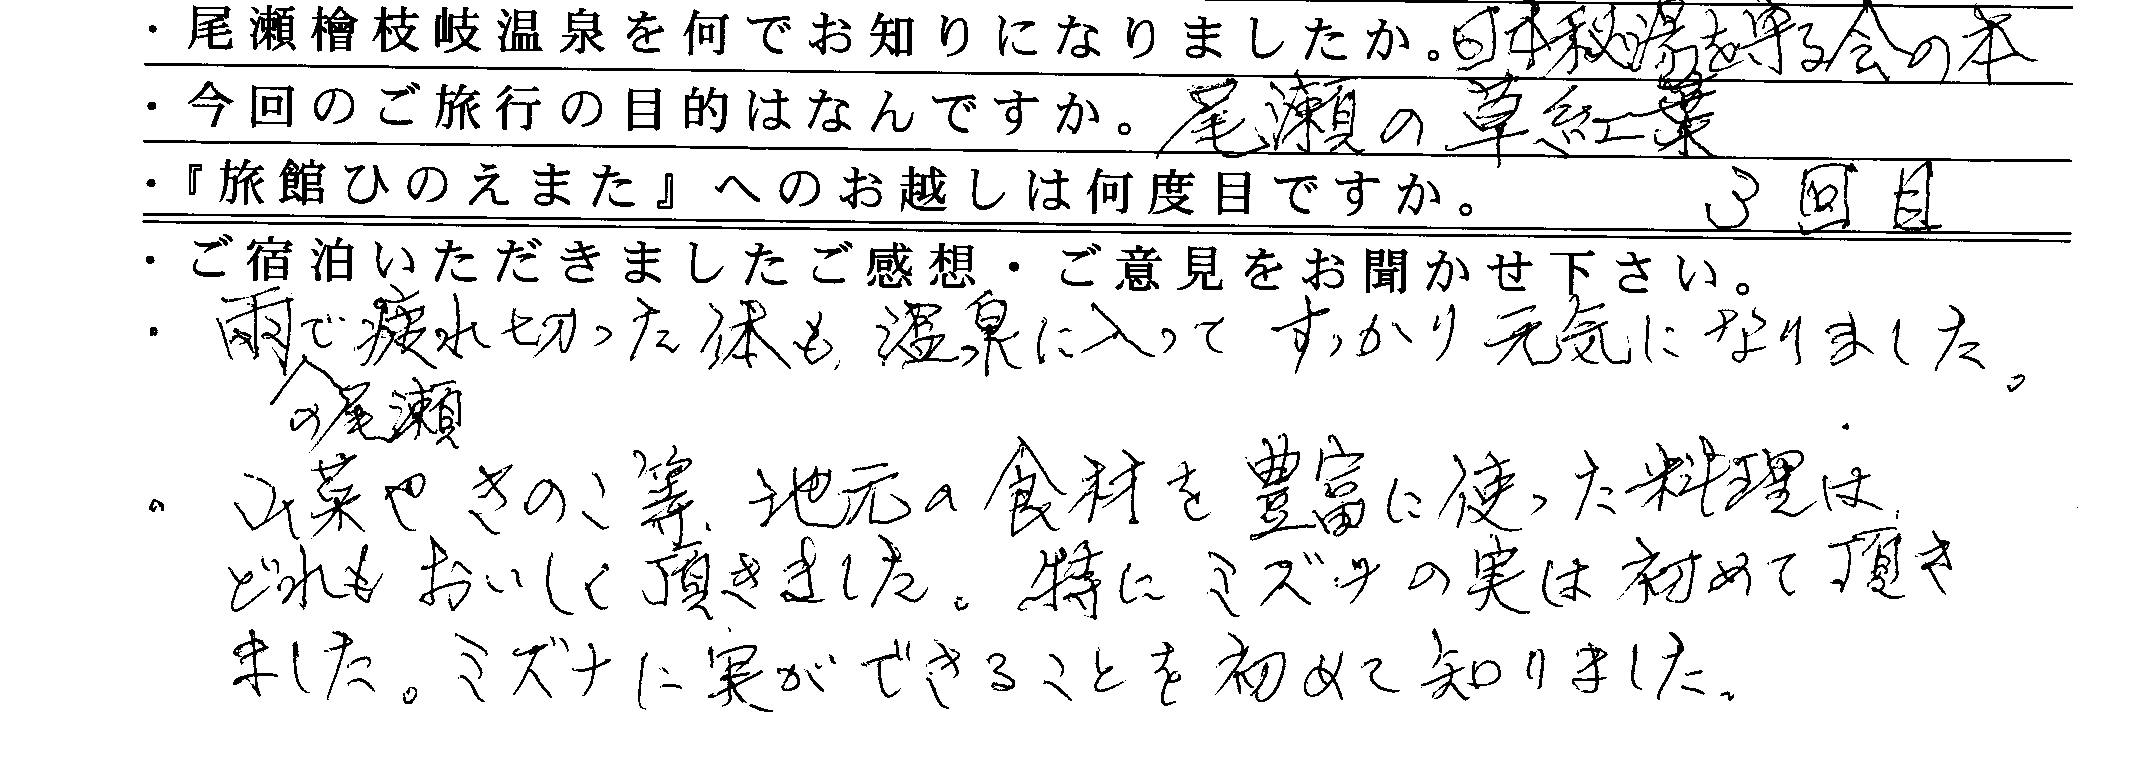 ・尾瀬檜枝岐温泉を何でお知りになりましたか。日本秘湯を守る会の本
・今回のご旅行の目的はなんですか。尾瀬の草紅葉
・『旅館ひのえまた』へのお越しは何度目ですか。 3回目
・ご宿泊いただきましたご感想・ご意見をお聞かせ下さい。
・雨で疲れ切った体も、温泉に入ってすっかり元気になりました。
の尾瀬
・山菜やきのこ等、地元の食材を豊富に使った料理は、
どれもおいしく頂きました。特にミズナの実は初めて頂き
ました。ミズナに実ができることを初めて知りました。